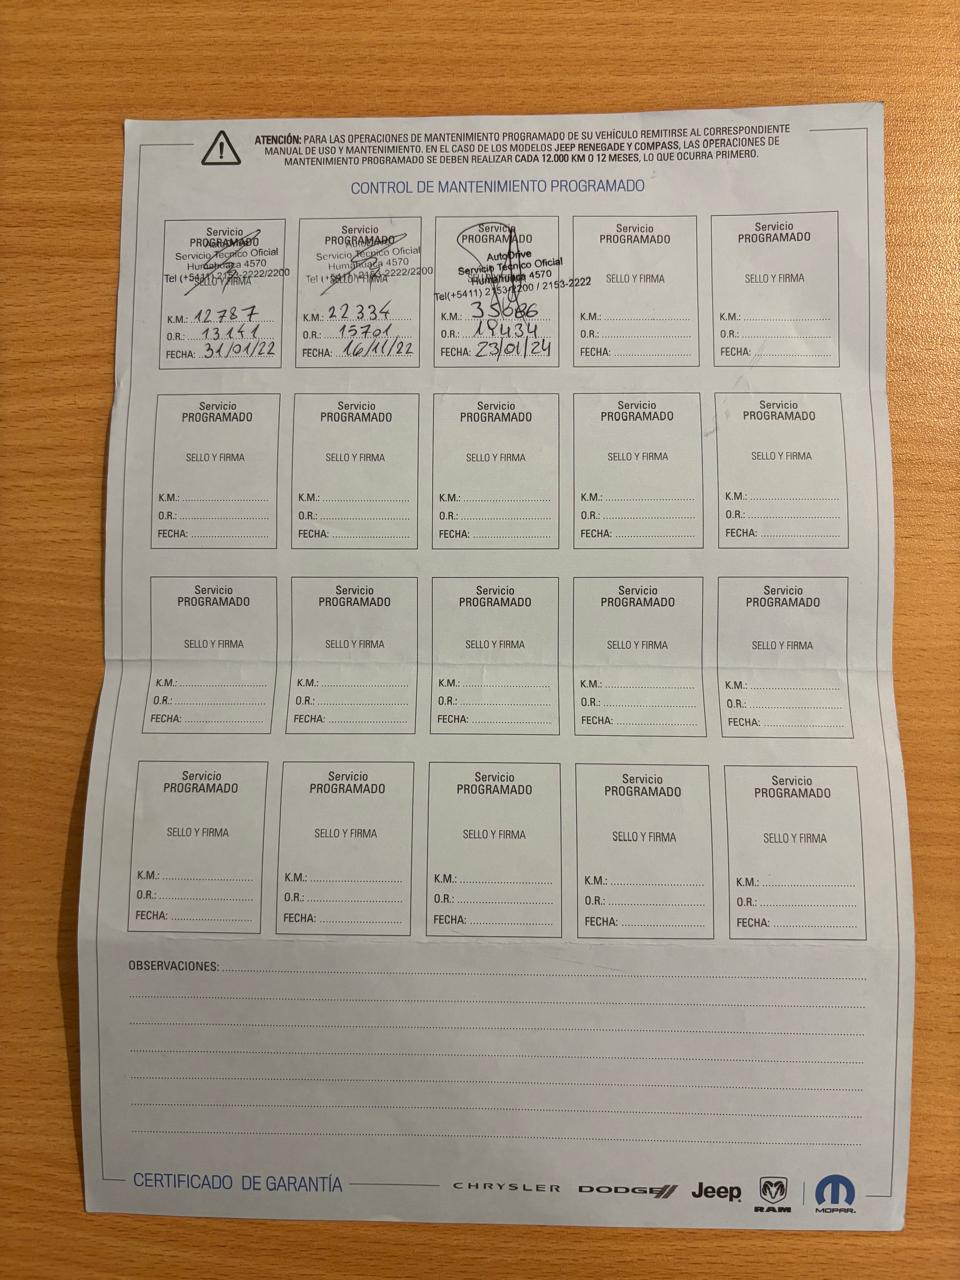 ATENCIÓN: PARA LAS OPERACIONES DE MANTENIMIENTO PROGRAMADO DE SU VEHÍCULO REMITIRSE AL CORRESPONDIENTE
MANUAL DE USO Y MANTENIMIENTO. EN EL CASO DE LOS MODELOS JEEP RENEGADE Y COMPASS, LAS OPERACIONES DE
MANTENIMIENTO PROGRAMADO SE DEBEN REALIZAR CADA 12.000 KM O 12 MESES, LO QUE OCURRA PRIMERO.
CONTROL DE MANTENIMIENTO PROGRAMADO
Servicio
PROGRAMADO
AutoDrive
Servicio Técnico Oficial
Humahuaca 4570
Tel (+5411) 2153-2222/2200
SELLO Y FIRMA
K.M.: 12787
O.R.: 13141
FECHA: 31/01/22
Servicio
PROGRAMADO
AutoDrive
Servicio Técnico Oficial
Humahuaca 4570
Tel (+5411) 2153-2222/2200
SELLO Y FIRMA
K.M.: 22334
O.R.: 15701
FECHA: 16/11/22
Servicio
PROGRAMADO
AutoDrive
Servicio Técnico Oficial
Humahuaca 4570
Tel(+5411) 2153-2200 / 2153-2222
K.M.:
O.R.: 19434
FECHA: 23/01/24
Servicio
PROGRAMADO
SELLO Y FIRMA
K.M.:
O.R.:
FECHA:
Servicio
PROGRAMADO
SELLO Y FIRMA
K.M.:
O.R.:
FECHA:
Servicio
PROGRAMADO
SELLO Y FIRMA
K.M.:
O.R.:
FECHA:
Servicio
PROGRAMADO
SELLO Y FIRMA
K.M.:
O.R.:
FECHA:
Servicio
PROGRAMADO
SELLO Y FIRMA
K.M.:
O.R.:
FECHA:
Servicio
PROGRAMADO
SELLO Y FIRMA
K.M.:
O.R.:
FECHA:
Servicio
PROGRAMADO
SELLO Y FIRMA
K.M.:
O.R.:
FECHA:
Servicio
PROGRAMADO
SELLO Y FIRMA
K.M.:
O.R.:
FECHA:
Servicio
PROGRAMADO
SELLO Y FIRMA
K.M.:
O.R.:
FECHA:
Servicio
PROGRAMADO
SELLO Y FIRMA
K.M.:
O.R.:
FECHA:
Servicio
PROGRAMADO
SELLO Y FIRMA
K.M.:
O.R.:
FECHA:
Servicio
PROGRAMADO
SELLO Y FIRMA
K.M.:
O.R.:
FECHA:
Servicio
PROGRAMADO
SELLO Y FIRMA
K.M.:
O.R.:
FECHA:
Servicio
PROGRAMADO
SELLO Y FIRMA
K.M.:
O.R.:
FECHA:
Servicio
PROGRAMADO
SELLO Y FIRMA
K.M.:
O.R.:
FECHA:
Servicio
PROGRAMADO
SELLO Y FIRMA
K.M.:
O.R.:
FECHA:
Servicio
PROGRAMADO
SELLO Y FIRMA
K.M.:
O.R.:
FECHA:
OBSERVACIONES:
CERTIFICADO DE GARANTÍA
CHRYSLER DODGE Jeep RAM MOPAR